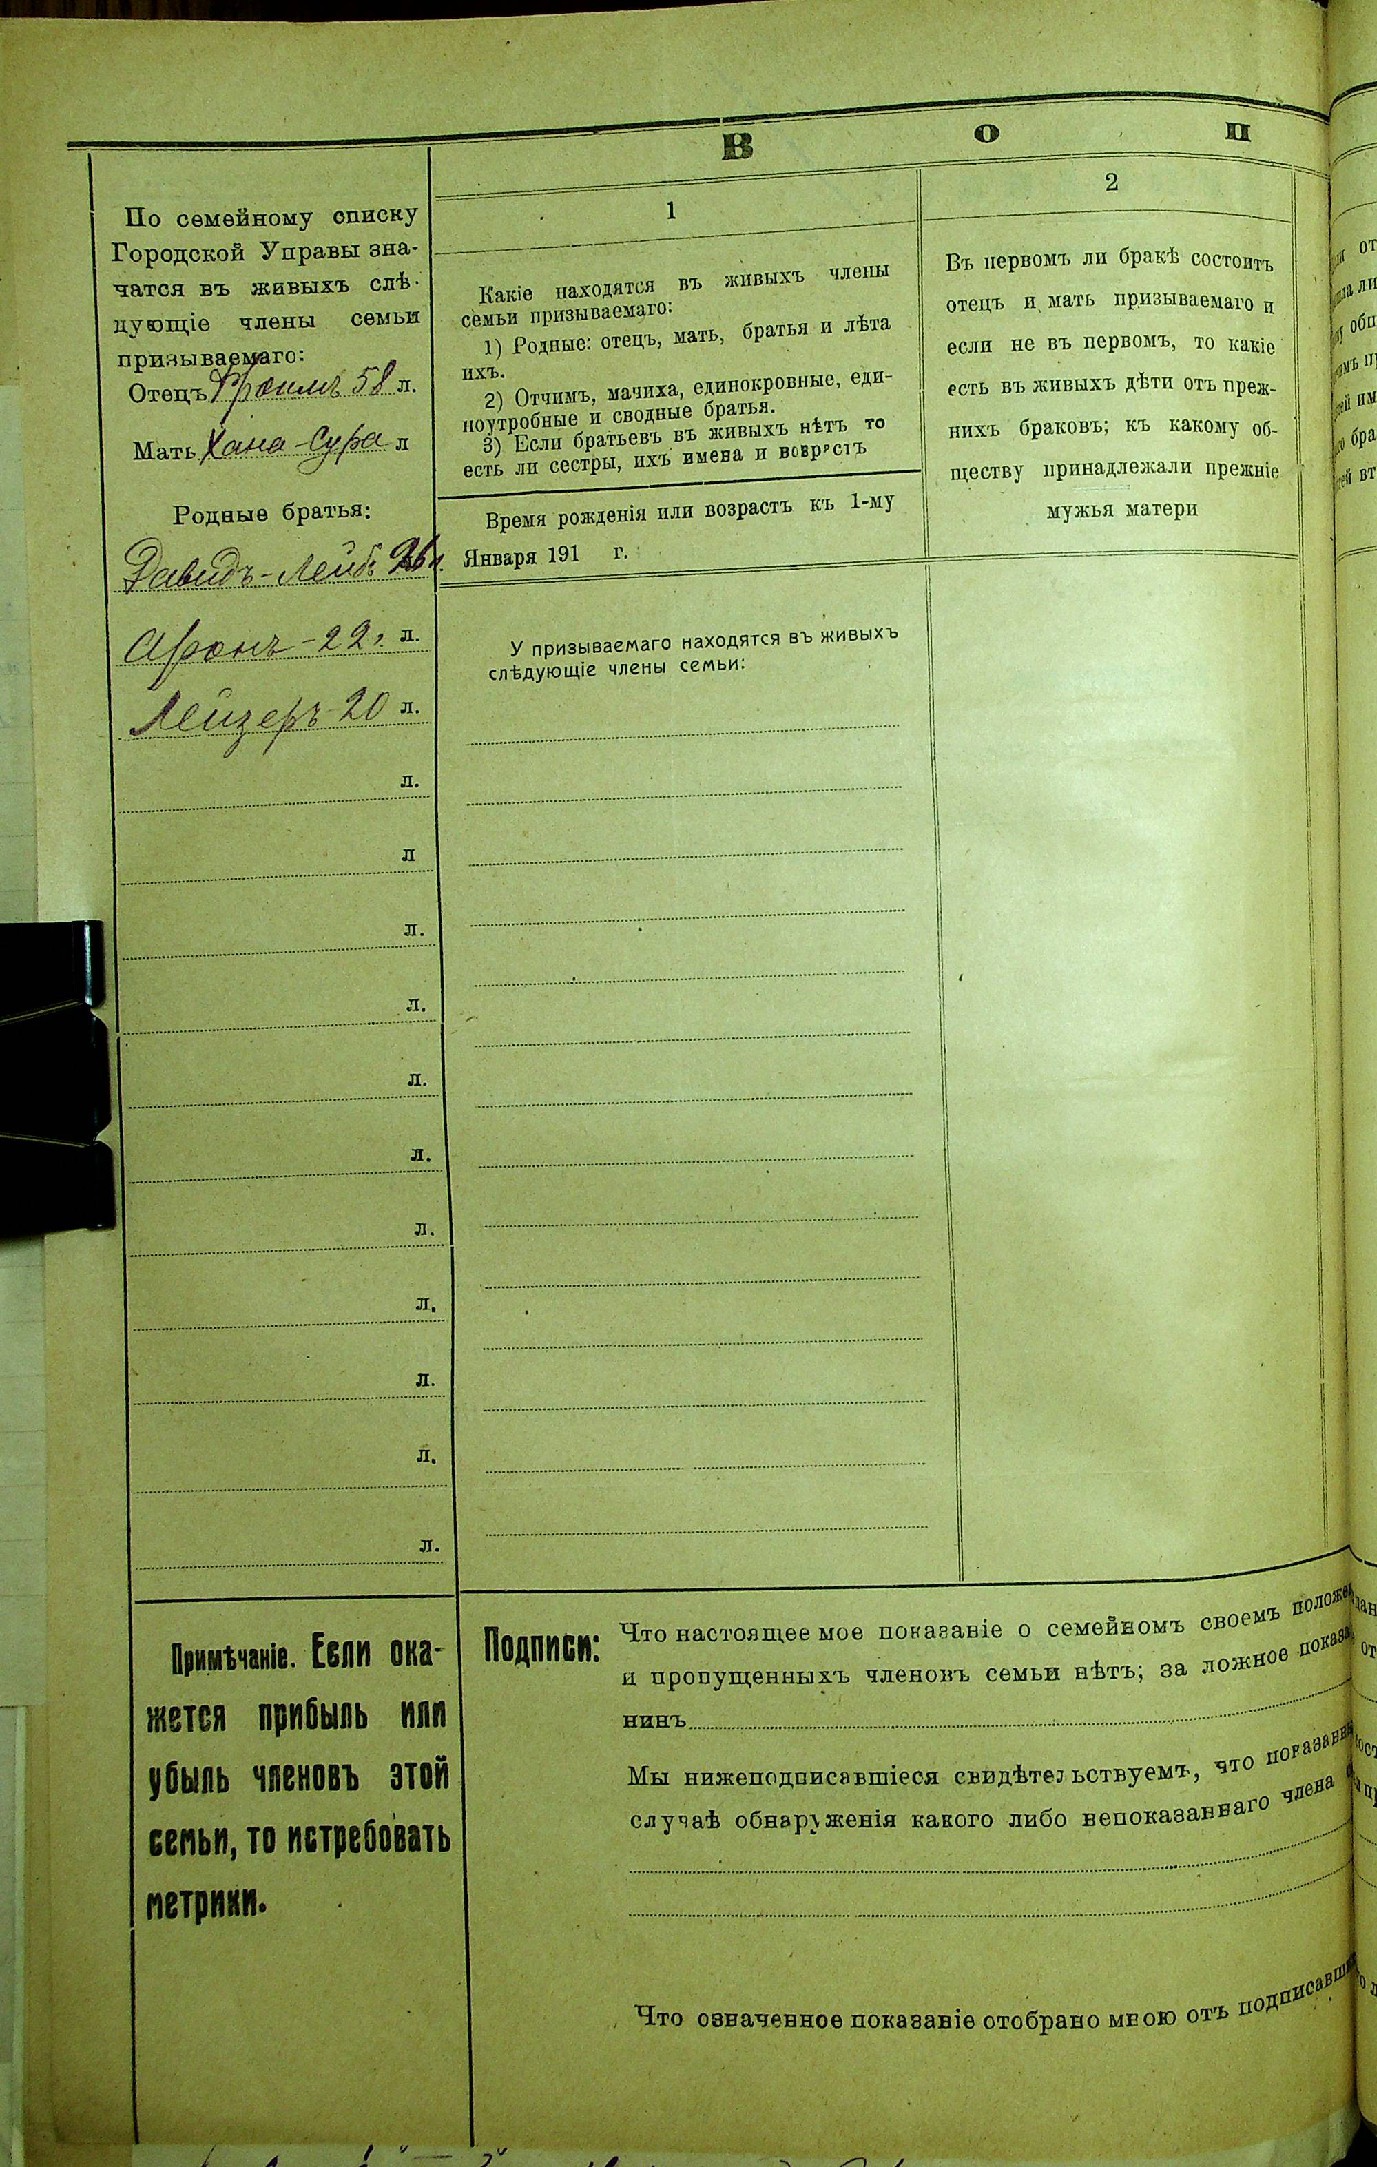 В о п
По семейному списку
Городской Управы зна-
чатся въ живыхъ слѣ-
дующіе члены семьи
призываемаго:
Отецъ Фроимъ 58 л.
Мать Хана-Сура л
Родные братья:
Давидъ-Лейбъ 26 л.
Аронъ-22 л.
Лейзеръ-20 л.
л.
л
л.
л.
л.
л.
л.
л.
л.
л.
л.
Примѣчаніе. Если ока-
жется прибыль или
убыль членовъ этой
семьи, то истребовать
метрики.
1
Какіе находятся въ живыхъ члены
семьи призываемаго:
1) Родные: отецъ, мать, братья и лѣта
ихъ.
2) Отчимъ, мачиха, единокровные, еди-
ноутробные и сводные братья.
3) Если братьевъ въ живыхъ нѣтъ то
есть ли сестры, ихъ имена и возрастъ
Время рожденія или возрастъ къ 1-му
Января 191 г.
У призываемаго находятся въ живыхъ
слѣдующіе члены семьи:
2
Въ первомъ ли бракѣ состоитъ
отецъ и мать призываемаго и
если не въ первомъ, то какіе
есть въ живыхъ дѣти отъ преж-
нихъ браковъ; къ какому об-
ществу принадлежали прежніе
мужья матери
Подписи:
Что настоящее мое показаніе о семейномъ своемъ положе
и пропущенныхъ членовъ семьи нѣтъ; за ложное показа
нинъ
Мы нижеподписавшіеся свидѣтельствуемъ, что показанн
случаѣ обнаруженія какого либо непоказаннаго члена
Что означенное показаніе отобрано мною отъ подписавши